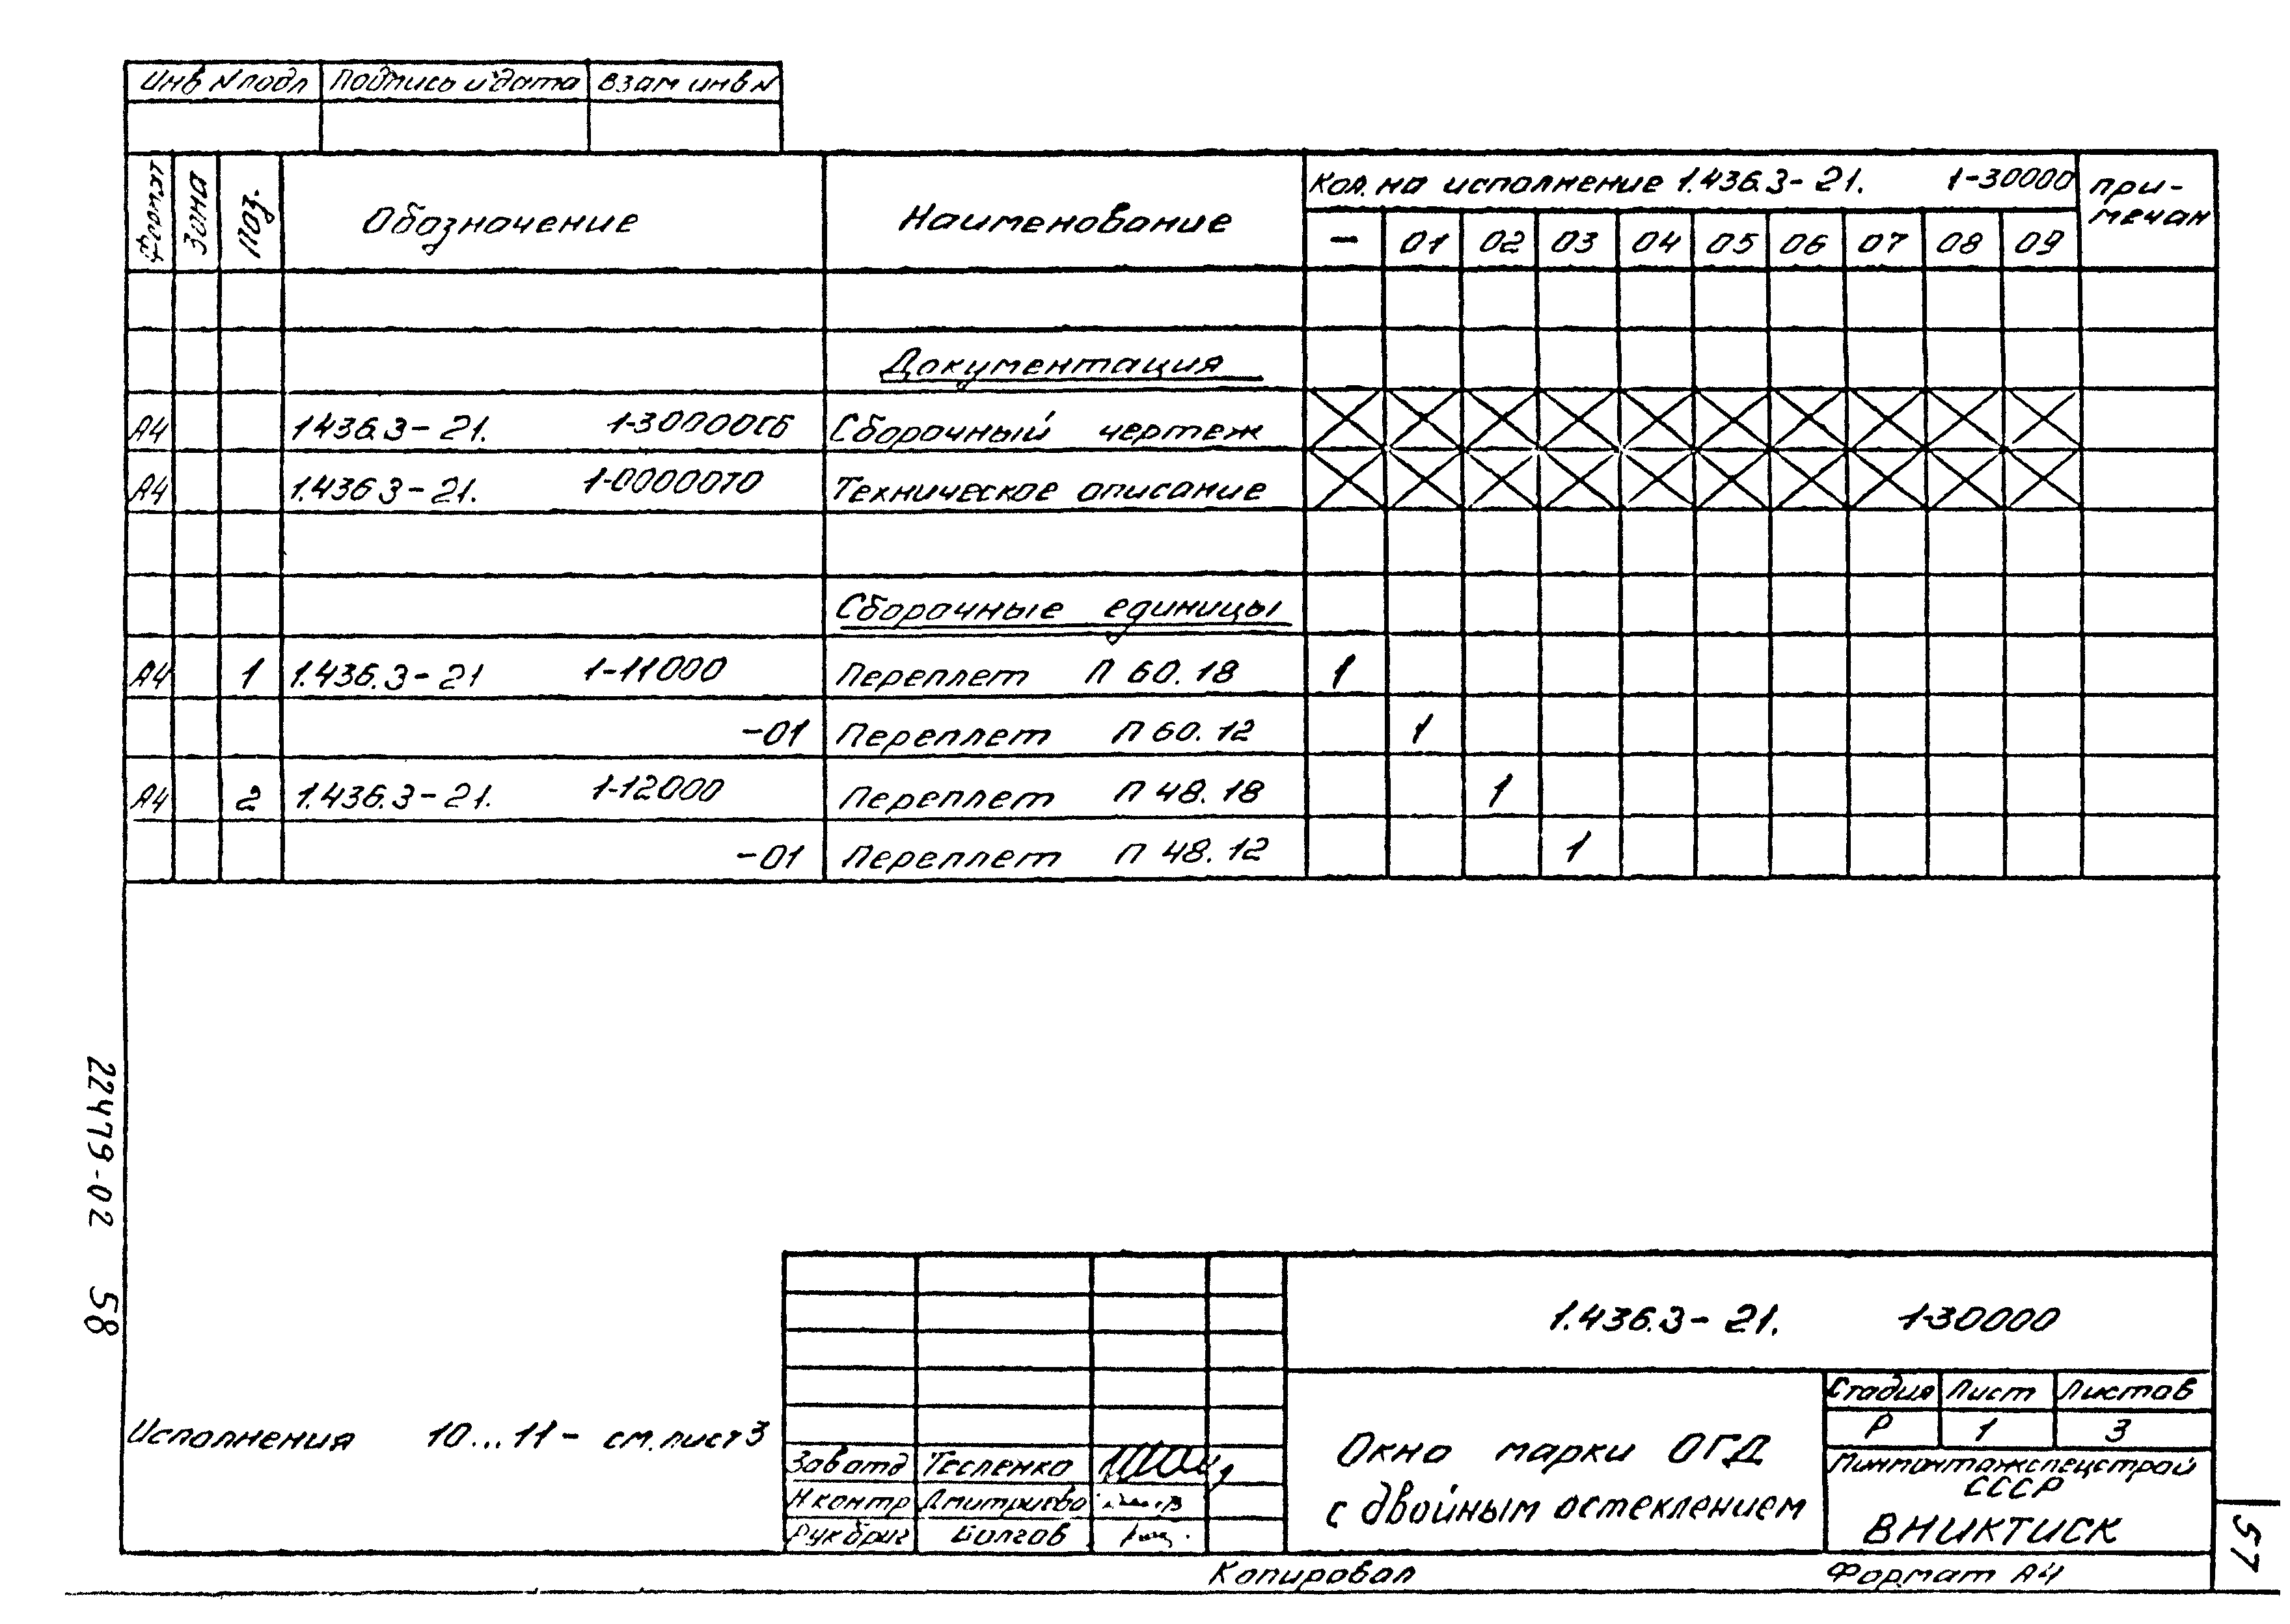 Инв N подл Подпись и дата Взам инв N
Формат Зона Поз. Обозначение Наименование Кол. на исполнение 1.436.3-21. 1-30000 При-
мечан
- 01 02 03 04 05 06 07 08 09
Документация
А4 1436.3-21. 1-30000СБ Сборочный чертеж
А4 1.436 3-21. 1-00000ТО Техническое описание
Сборочные единицы
А4 1 1.436.3-21 1-11000 Переплет П 60.18 1
-01 Переплет П 60.12 1
А4 2 1.436.3-21. 1-12000 Переплет П 48.18 1
-01 Переплет П 48.12 1
22479-02 58
1.436.3-21. 1-30000
Исполнения 10...11- см. лист 3
Зав отд Тесленко
Н контр Дмитриева
Рук бриг Болгов
Окна марки ОГД
с двойным остеклением
Стадия Лист Листов
Р 1 3
Минмонтажспецстрой
СССР
ВНИКТИСК
57
Копировал Формат А4